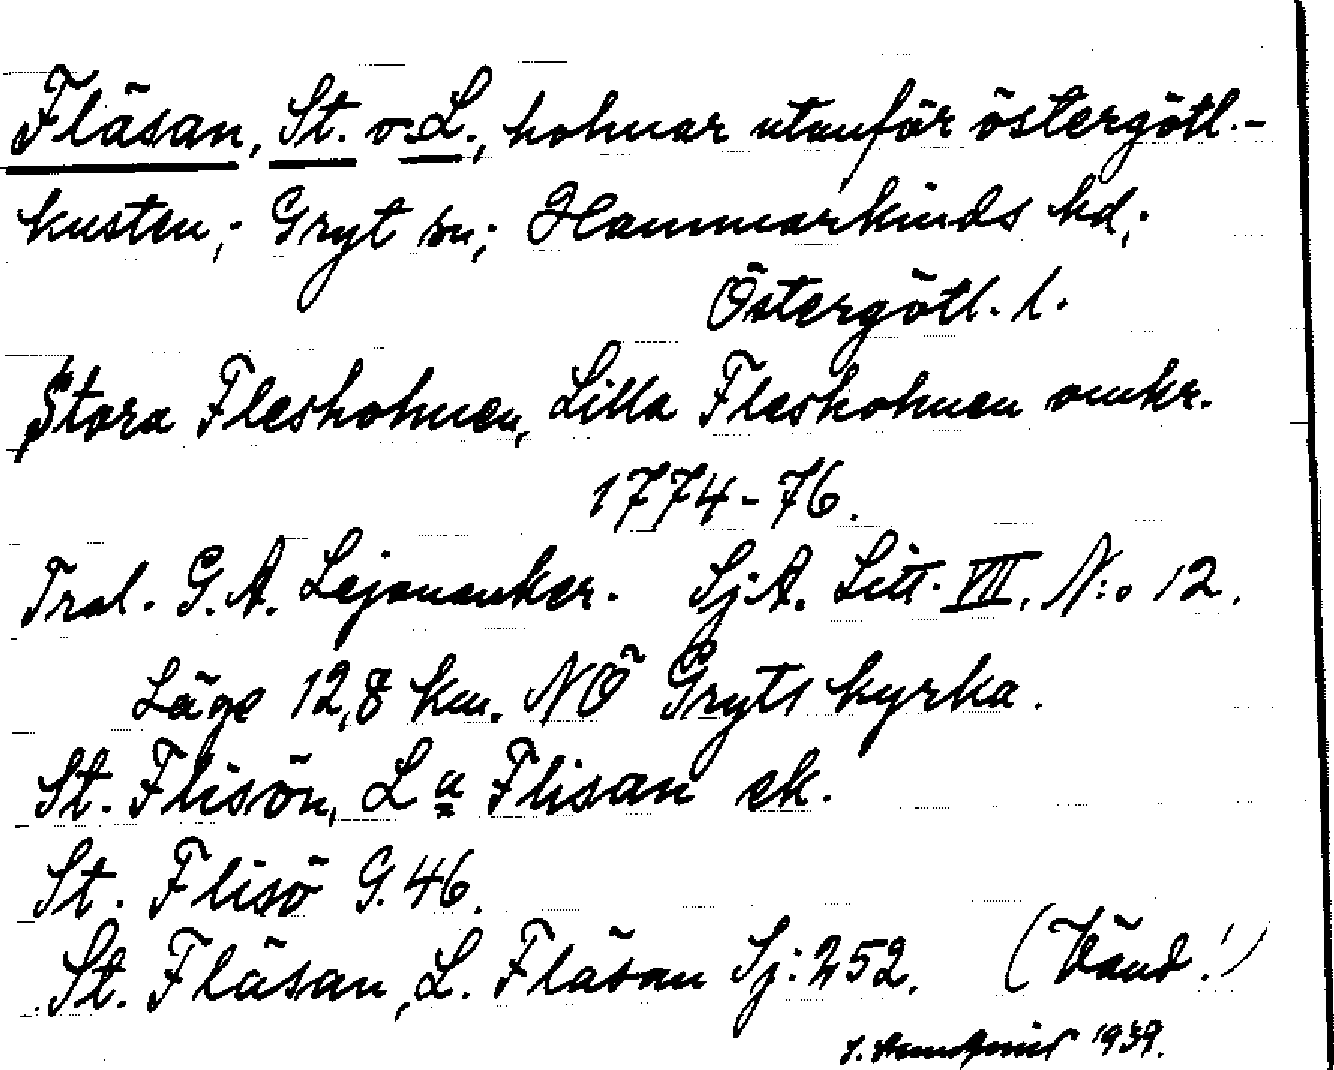 Fläsan, St. o. L., holmar utanför östergötl.-
kusten; Gryt sn; Hammarkinds hd;
Östergötl. l.
Stora Flesholmen, Lilla Flesholmen omkr.
1774-76.
Tral. G. A. Lejonanker. Sj:A. Litt. VII. N:o 12.
Läge 12,8 km. NÖ Gryts kyrka.
St. Flisön, La Flisan ek.
St. Flisö G. 46.
St. Fläsan, L. Fläsan Sj: 252. (Vänd!)
1939.